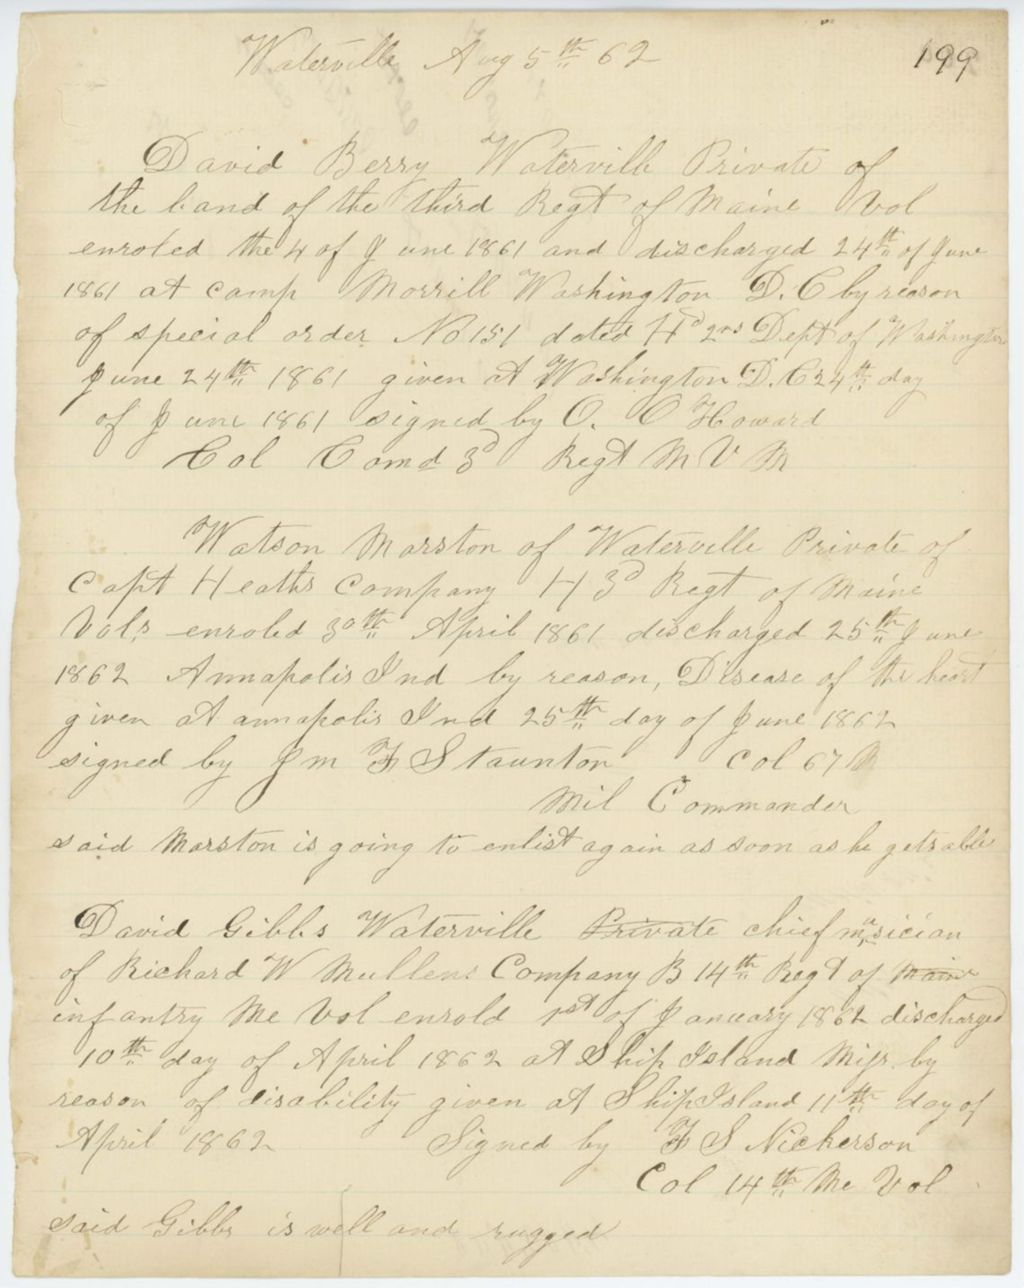 Waterville Aug 5th 62
199
David Berry Waterville Private of
the band of the third Regt of Maine Vol
enroled the 4 of June 1861 and discharged 24th of June
1861 at camp Morrill Washington D.C by reason
of special order No 151 dated Hd Dept of Washington
June 24th 1861 given at Washington D.C 24th day
of June 1861 signed by O. O Howard
Col Comd 3d Regt M V M
Watson Marston of Waterville Private of
Capt Heaths Company H 3d Regt of Maine
Vols enroled 30th April 1861 discharged 25th June
1862 Annapolis Ind by reason, Disease of the heart
given at annapolis Ind 25th day of June 1862
signed by Jm F Staunton Col 67
Mil Commander
said Marston is going to enlist again as soon as he gets able
David Gibbs Waterville Private chief musician
of Richard W Mullens Company B 14th Regt of Maine
infantry Me Vol enrold 1st of January 1862 discharged
10th day of April 1862 at Ship Island Miss. by
reason of disability given at Ship Island 11th day of
April 1862 Signed by F S Nickerson
Col 14th Me Vol
said Gibbs is well and rugged